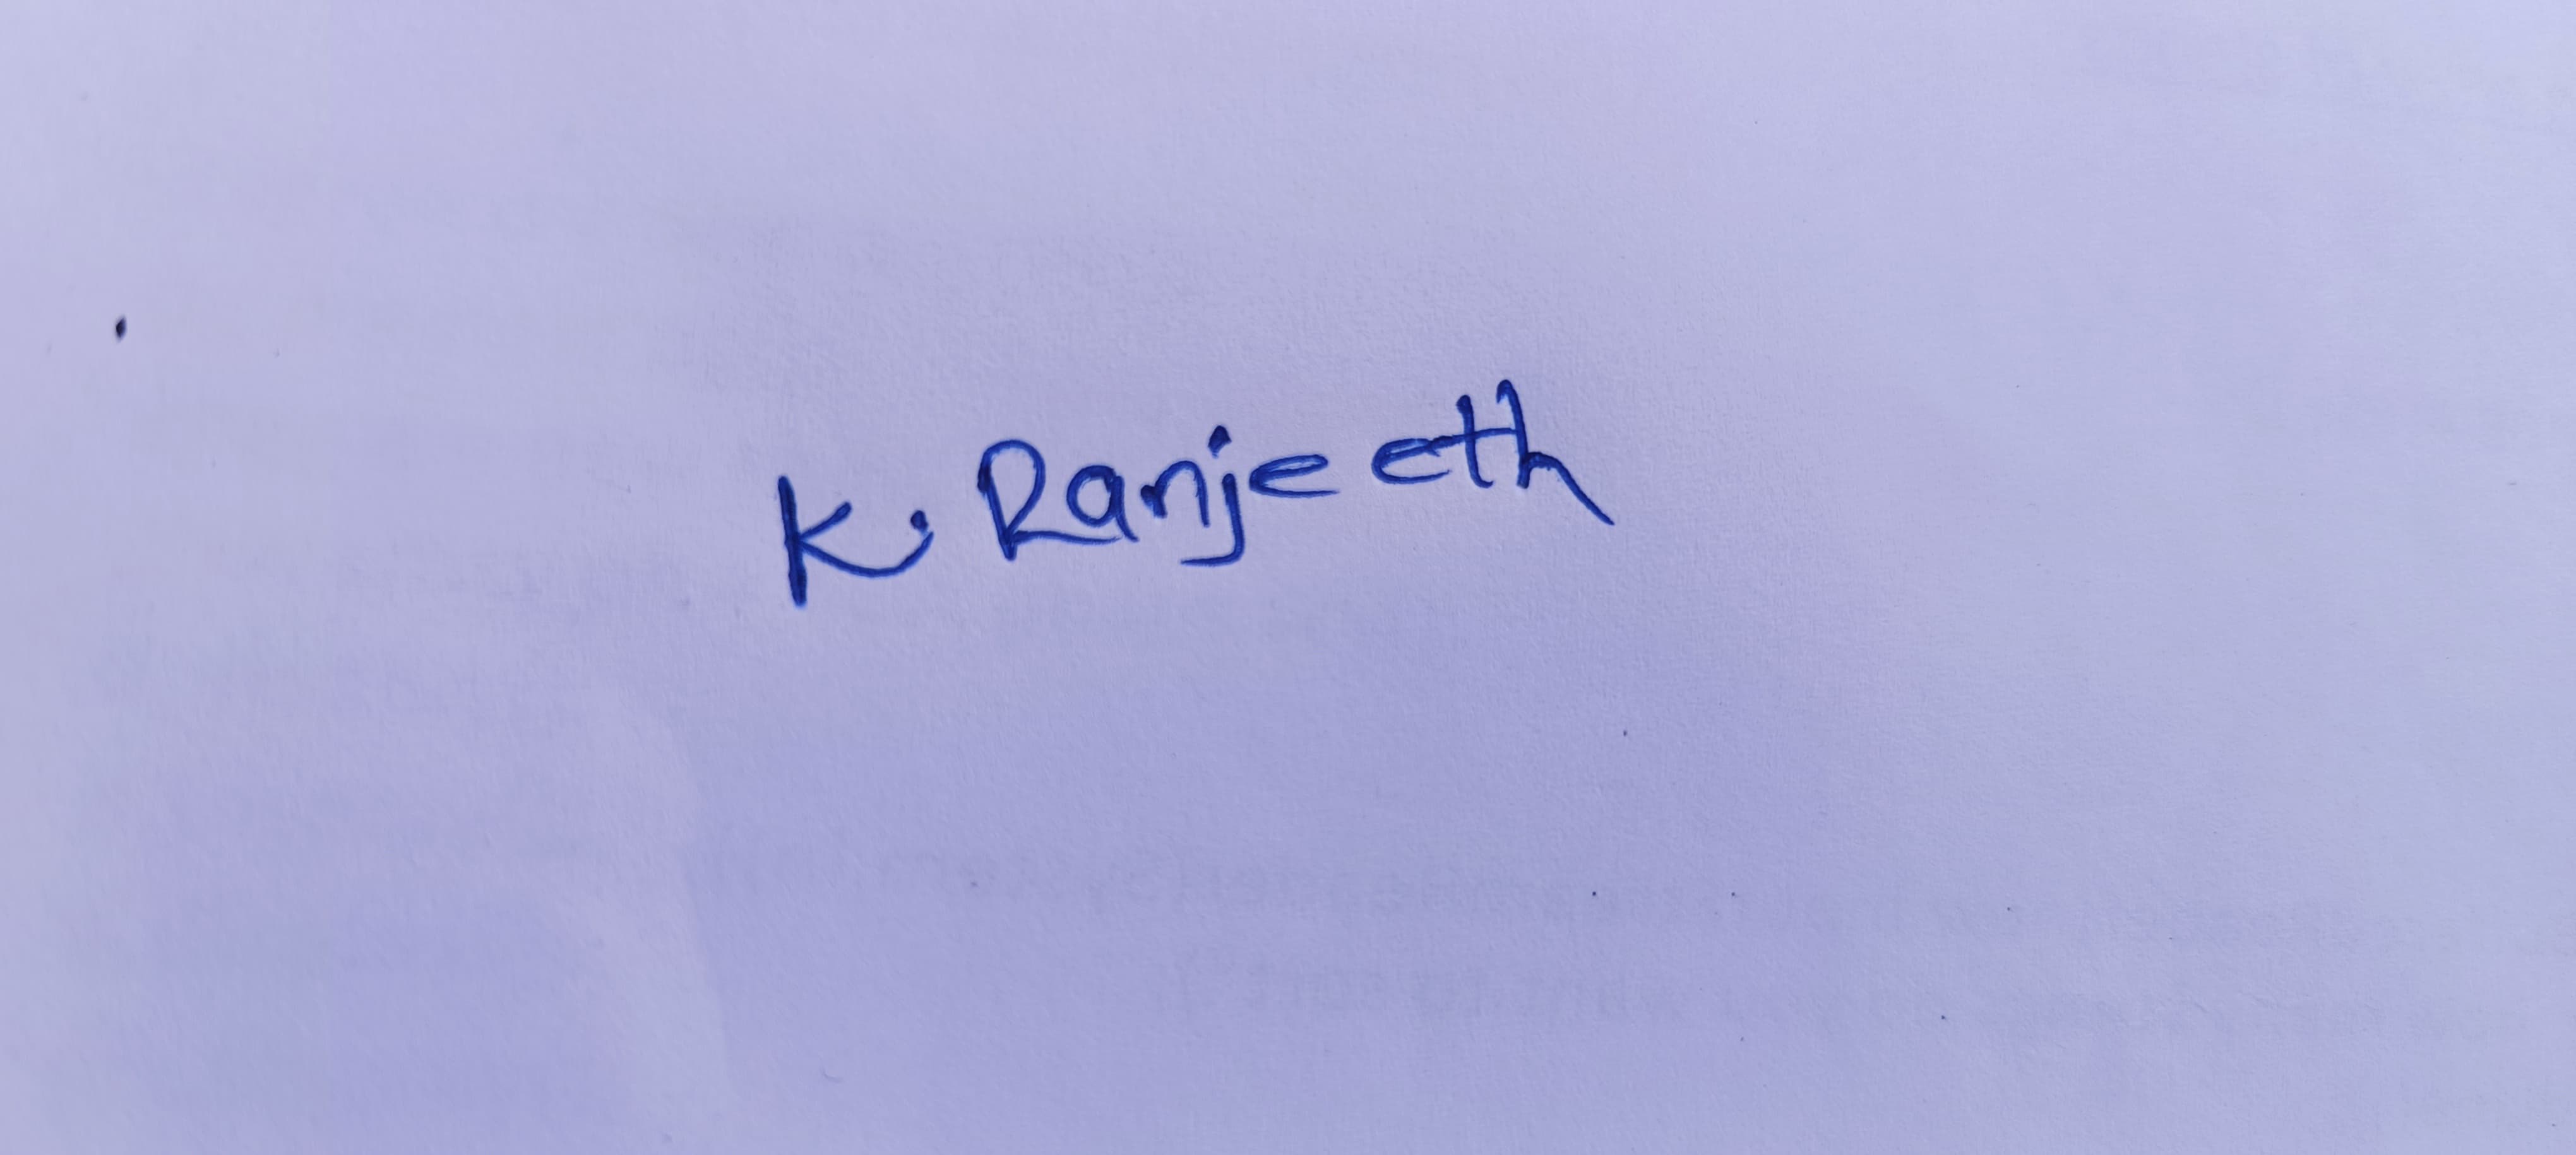 K. Ranjeeth